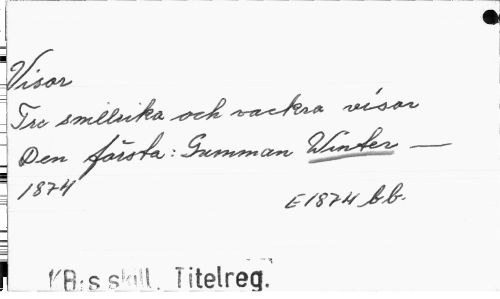 Visor
Tre snillrika och vackra visor
Den första: Gumman Winter —
1874
E 1874 bb.
KB:s skill. Titelreg.